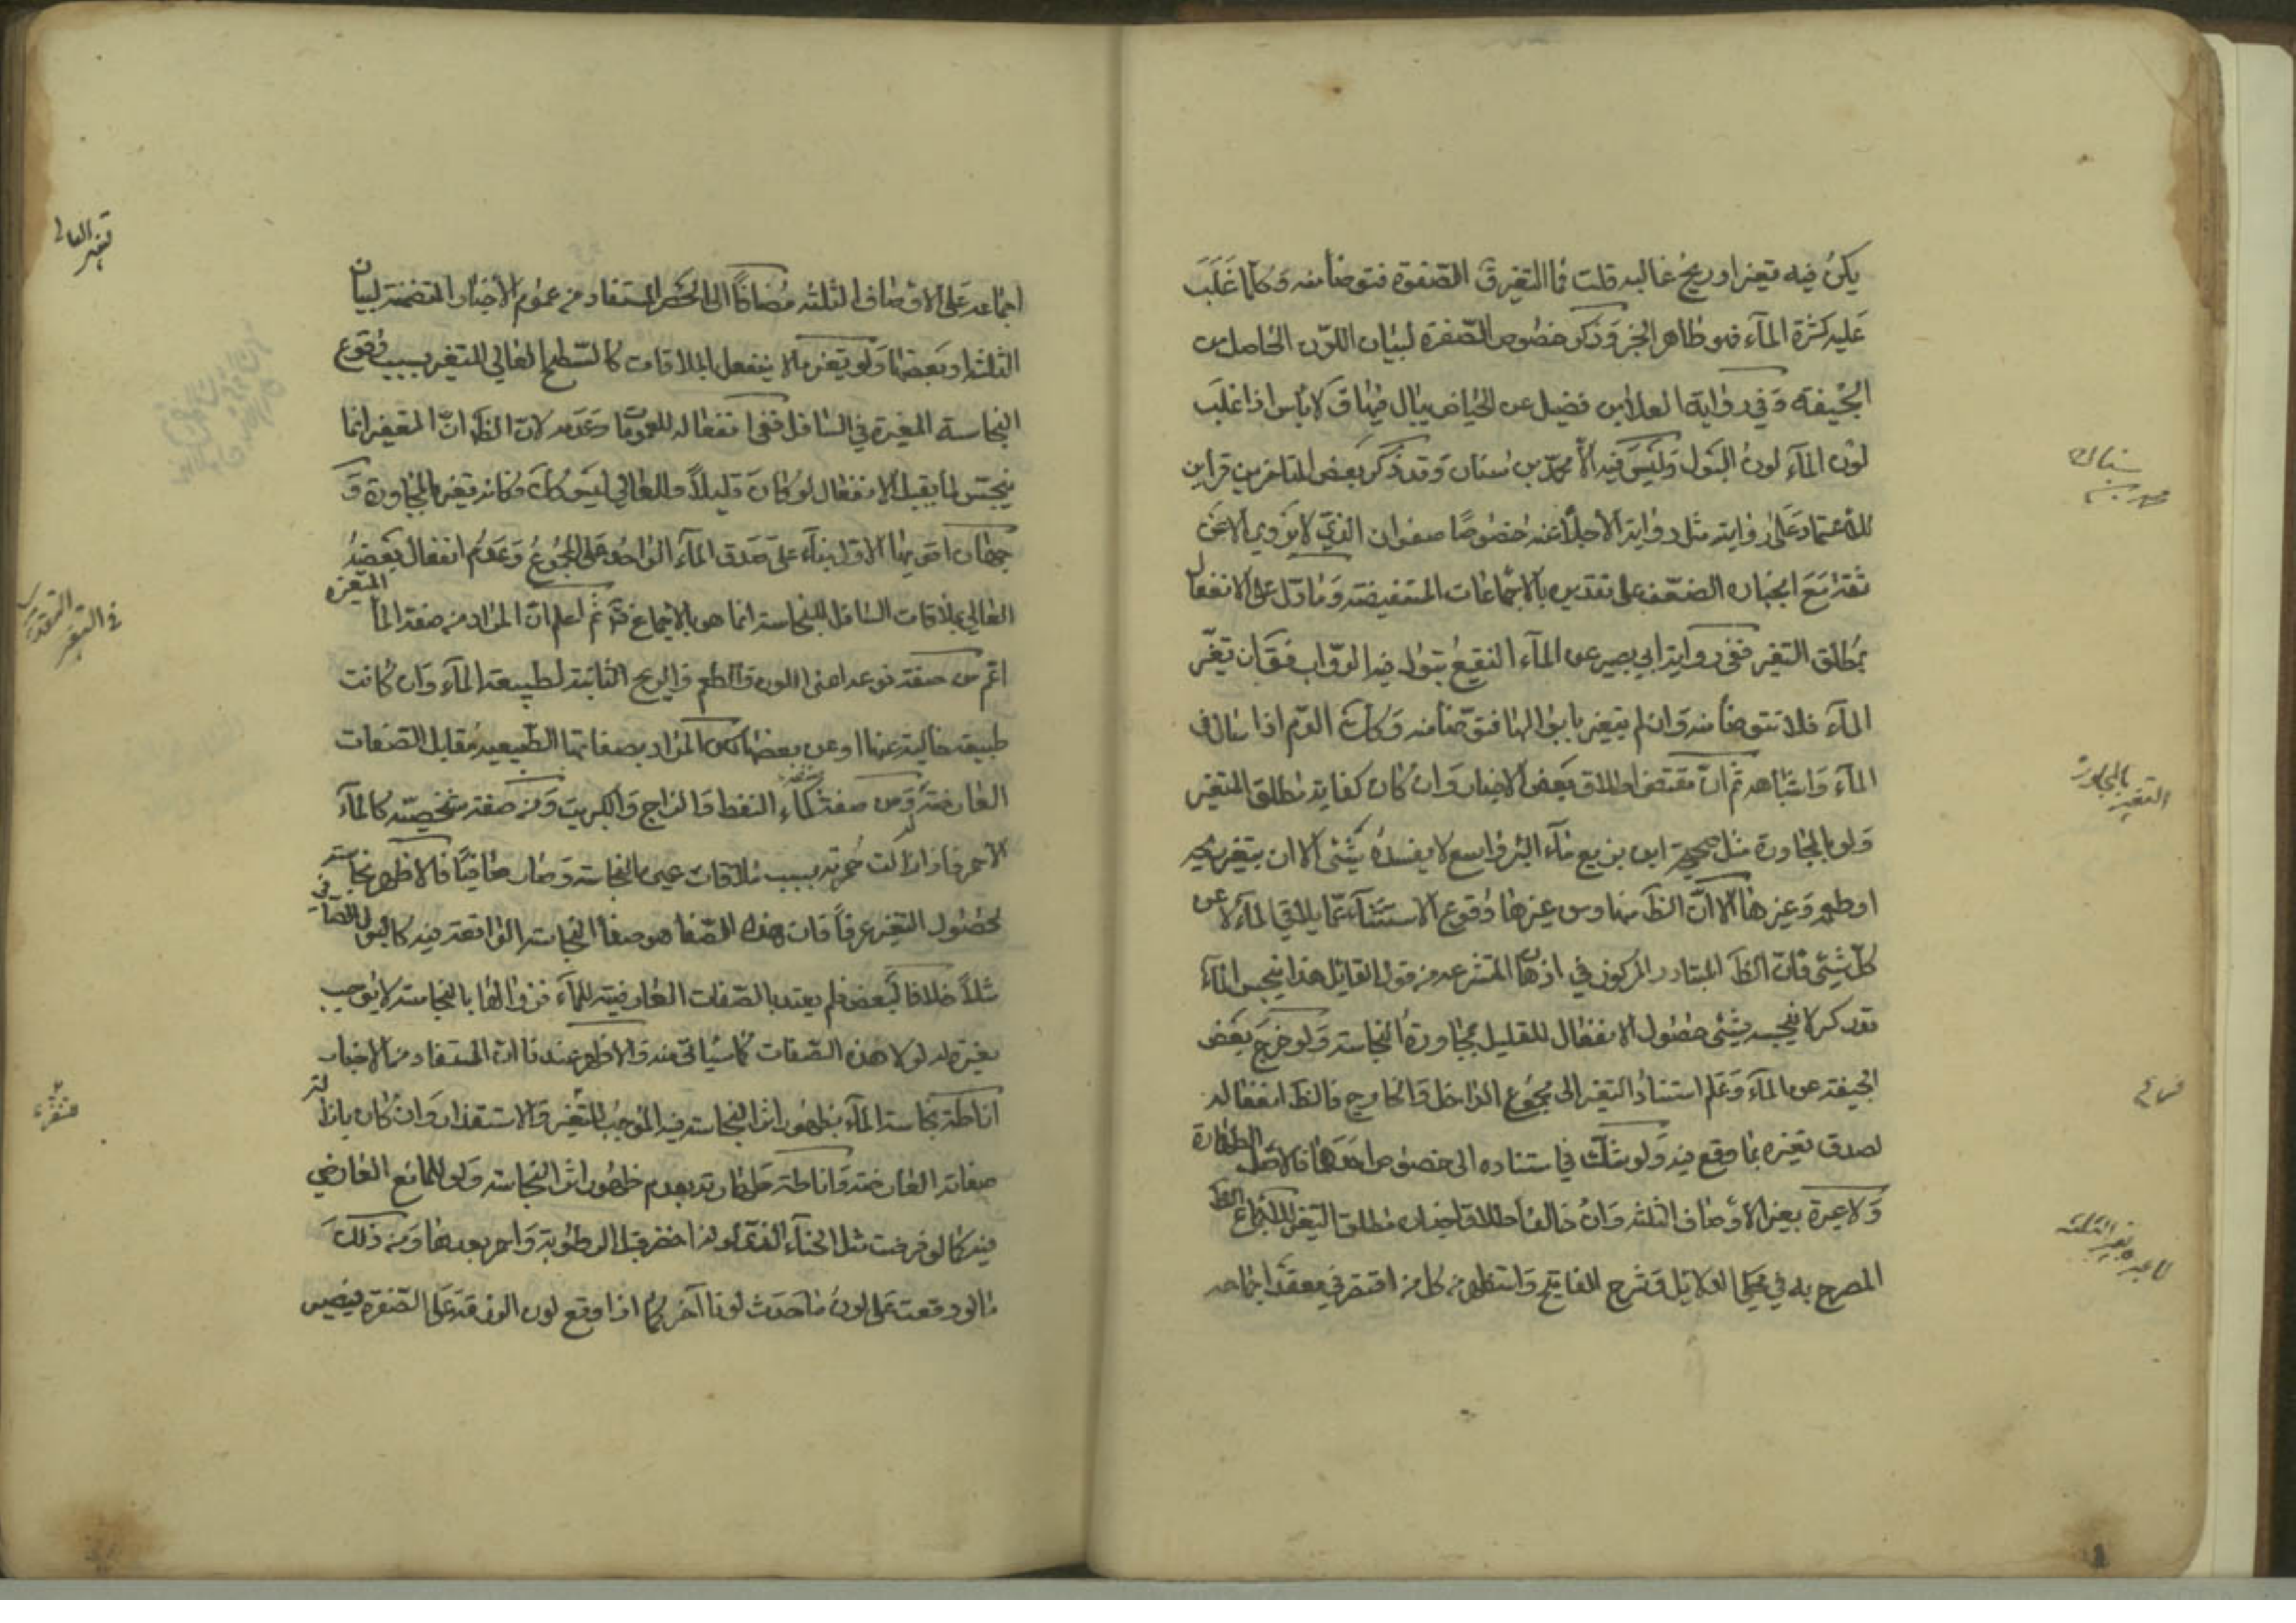 يكن فيه تغير او ريح غالبه قلت فما التغير ق الصفرة فتوضأ منه وكلما غَلَبَ
عليه كثرة المآء فهو طاهر الخبر وذكر خصوص الصّفرة لبيان اللّون الحاصل من
الجيفة وفي رواية العلا بن فضيل عن الحياض يبال فيها ق لا بأس اذا غلب
لون المآء لون البول وليس فيه الّا محمّد بن سنان وقد ذكر بعض المتاخرين قراين
للاعتماد على روايته مثل رواية الاجلّاء عنه خصوصًا صفوان الذي لا يروي الا عن
ثقة مع انجبار الضعف على تقديره بالاجماعات المستفيضة وما دلّ على الانفعال
بمطلق التغير ففي رواية ابي بصير عن المآء النقيع تبول فيه الدوّاب فق ان تغيّر
المآء فلا تتوضأ منه وان لم يتغير بابوالها فتوضّأ منه وكك الدّم اذا سال في
المآء واشباهه ثم انّ مقتضى اطلاق بعض الاخبار وان كان كفاية مطلق المتغير
ولو بالمجاورة مثل صحيحة ابن بزيع مآء البئر واسع لا يفسدهُ شئ الا ان يتغير ريحه
او طعمه وغيرها الّا انّ الظَ منها ومن غيرها وقوع الاستثنآء عمّا يلاقي المآء لا عن
كلّ شئ فانّ الظَ المتبادر المركوز في اذهان المتشرعه من قول القايل هذا ينجس المآء
بعض حصول الانفعال للقليل بمجاورة النجاسة ولو خرج بعض
الجيفة عن المآء وعلم استناد التغير الى مجموع الداخل والخارج فالظَ انفعاله
لصدق تغيره بما وقع فيه ولو شكّ في استناده الى خصوص احدهما فالاصل الطهارة
ولا عبرة بغير الاوصاف الثلثه وان خالف اطلاق اخبار مطلق التغير للاجماع الظَ
المصرح به في محكي الدلايل وشرح المفاتيح واستظهر من كل من اقتصر في معقد اجماعه
سنان
محمد بن
التغير بالمجاورة
لا عبرة بغير الثلثه
اجماعه على الاوصاف الثلثه مضافًا الى الحصر المستفاد من عموم الأخبار المتضمنة لبيان
الثلثه او بعضها ولو تغير ما لا ينفعل بالملاقات كالسّطح العالي المتغير بسبب وقوع
النجاسة المغيرة في السافل ففي انفعاله للعمومات وعدمه لانّ الظَ انّ المتغير انّما
ينجس لما يقبل الانفعال لو كان قليلًا والعالي ليس كك وكانه تغير بالمجاورة وَ
جهان اقويهما الاول بناء على صدق المآء الواحد على المجموع وعدم انفعال بعضه
العالي بملاقات السافل للنجاسة انما هو بالاجماع ثم اعلم انّ المراد من صفة المآء المتغيرة
اعم من صفة نوعه اعنى اللون والطعم والريح الثابتة لطبيعة المآء وان كانت
طبيعة خالية عنها او عن بعضها لكن المراد بصفاتها الطّبيعيه مقابل الصّفات
العارضة ومن صفة صنفه كمآء النفط والزاج والكبريت ومن صفة شخصيّة كالمآء
الاحمر فاذا زالت حمرته بسبب ملاقات عين النجاسة وصار صافيًا فالاظهر نجاسته
لحصول التغير عرفًا فان هذه الصّفا هو صفا النجاسة الواقعة فيه كالبول الصّافي
مثلاً خلافا لبعض فلم يعتد بالصّفات العارضية للمآء فزوالها بالنجاسة لا يوجب
تغيره لو لا هذه الصّفات كما سيأتي منه والاظهر عندنا انّ المستفاد من الاخبار
اناطة نجاسة المآء بظهور اثر النجاسة فيه الموجب للتغير والاستقذار وان كان بازالة
صفاته العارضة واناطة طهارته بعدم ظهور اثر النجاسة ولو للمانع العارضي
فيه كما لو فرضت مثل الحنآء الذي لونه اخضر قبل الرطوبة واحمر بعدها ومن ذلك
ما لو وقعت على لون فاحدث لونا آخر كما اذا وقع لون الزرقة على الصّفرة فيضير
تغير العالي
في التغير التقديري